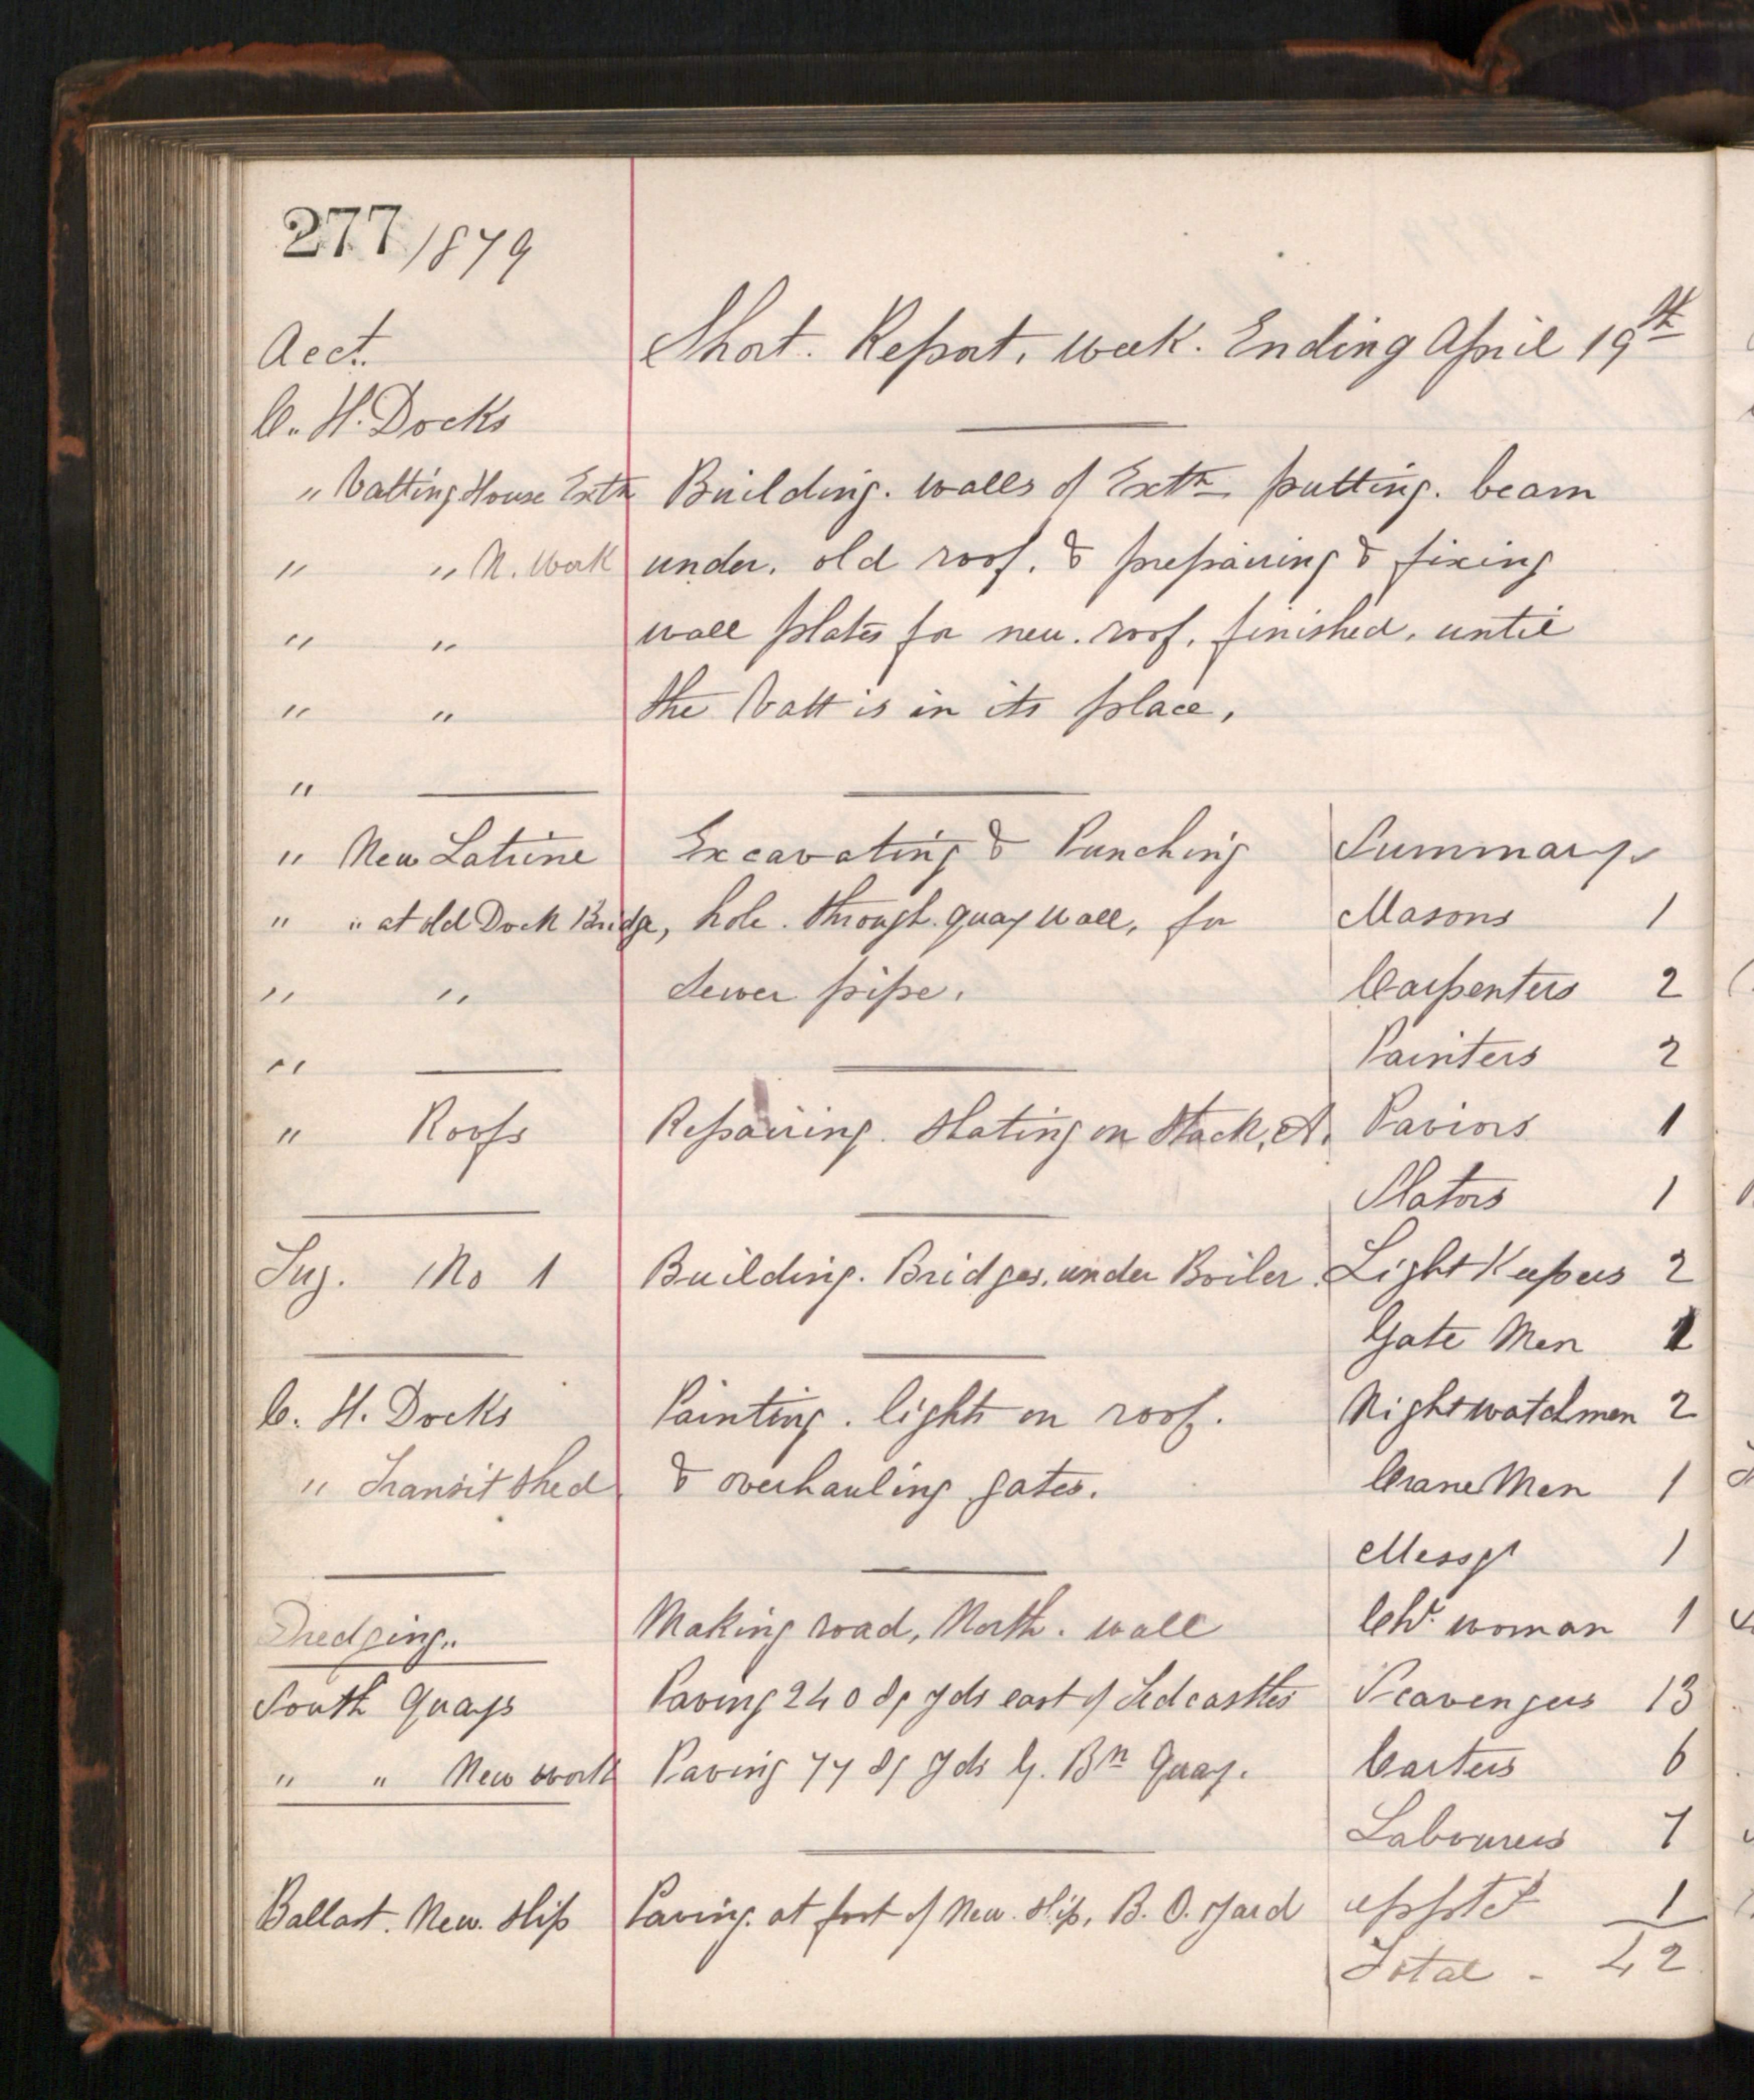 277/1879
Acct. Short. Report, week. Ending April 19th
C. H. Docks
" Vatting House Extn Building. walls of Extn putting. beam
" " N. Work under. old roof. & prepairing & fixing
" " wall plates for new. roof. finished. until
" " the Vatt is in its place.
"
" New Latrine Excavating & Punching Summary
" " at old Dock Bridge, hole. through. quay wall, for Masons 1
" " Sewer pipe. Carpenters 2
" Painters 2
" Roofs Repairing. Slating on Stack, A. Paviors 1
Slators 1
Lug. No 1 Building. Bridges. under Boiler. Light Keepers 2
Gate Men 1
C. H. Docks Painting. lights on roof. Nightwatchmen 2
" Transit Shed & overhauling gates. Crane Men 1
Messgr 1
Dredging.. Making road, North. wall Chr. woman 1
South Quays Paving 240 Sq yds east of Tedcastles Scavengers 13
" " New work Paving 77 Sq Yds G. Bn Quay. Carters 6
Labourers 7
Ballast. New. Slip Paving. at foot of New. Slip, B. O. Yard 1
Total - 42